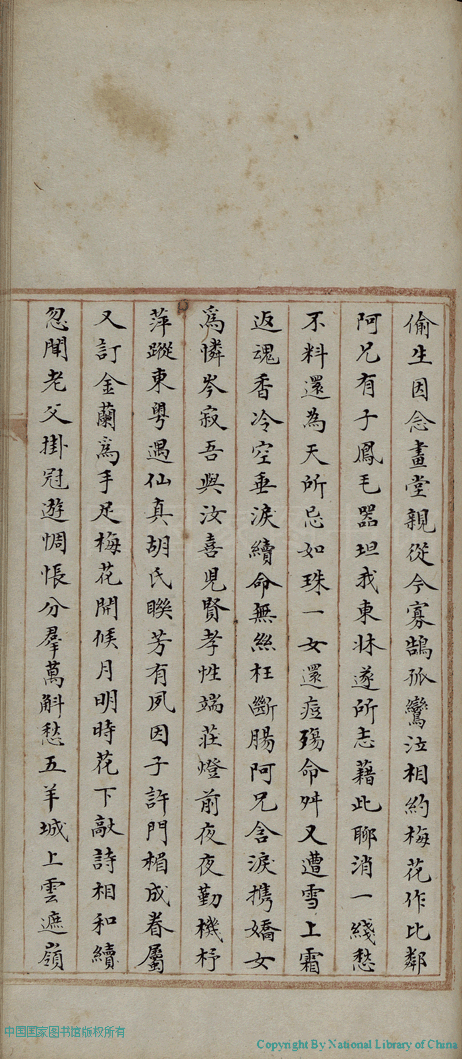 偷生因念畫堂親從今寡鵠孤鸞泣相約梅花作比鄰
阿兄有子鳳毛器坦我東牀遂所志藉此聊消一綫愁
不料還為天所忌如珠一女還痘殤命舛又遭雪上霜
返魂香冷空垂淚續命無絲枉斷腸阿兄含淚携嬌女
爲憐岑寂吾與汝喜児賢孝性端莊燈前夜夜勤機杼
萍蹤東粤遇仙真胡氏聮芳有夙因子許門楣成眷屬
又訂金蘭爲手足梅花開候月明時花下敲詩相和續
忽聞老父掛冠遊惆悵分羣萬斛愁五羊城上雲遮嶺
中国国家图书馆版权所有
Copyright By National Library of China